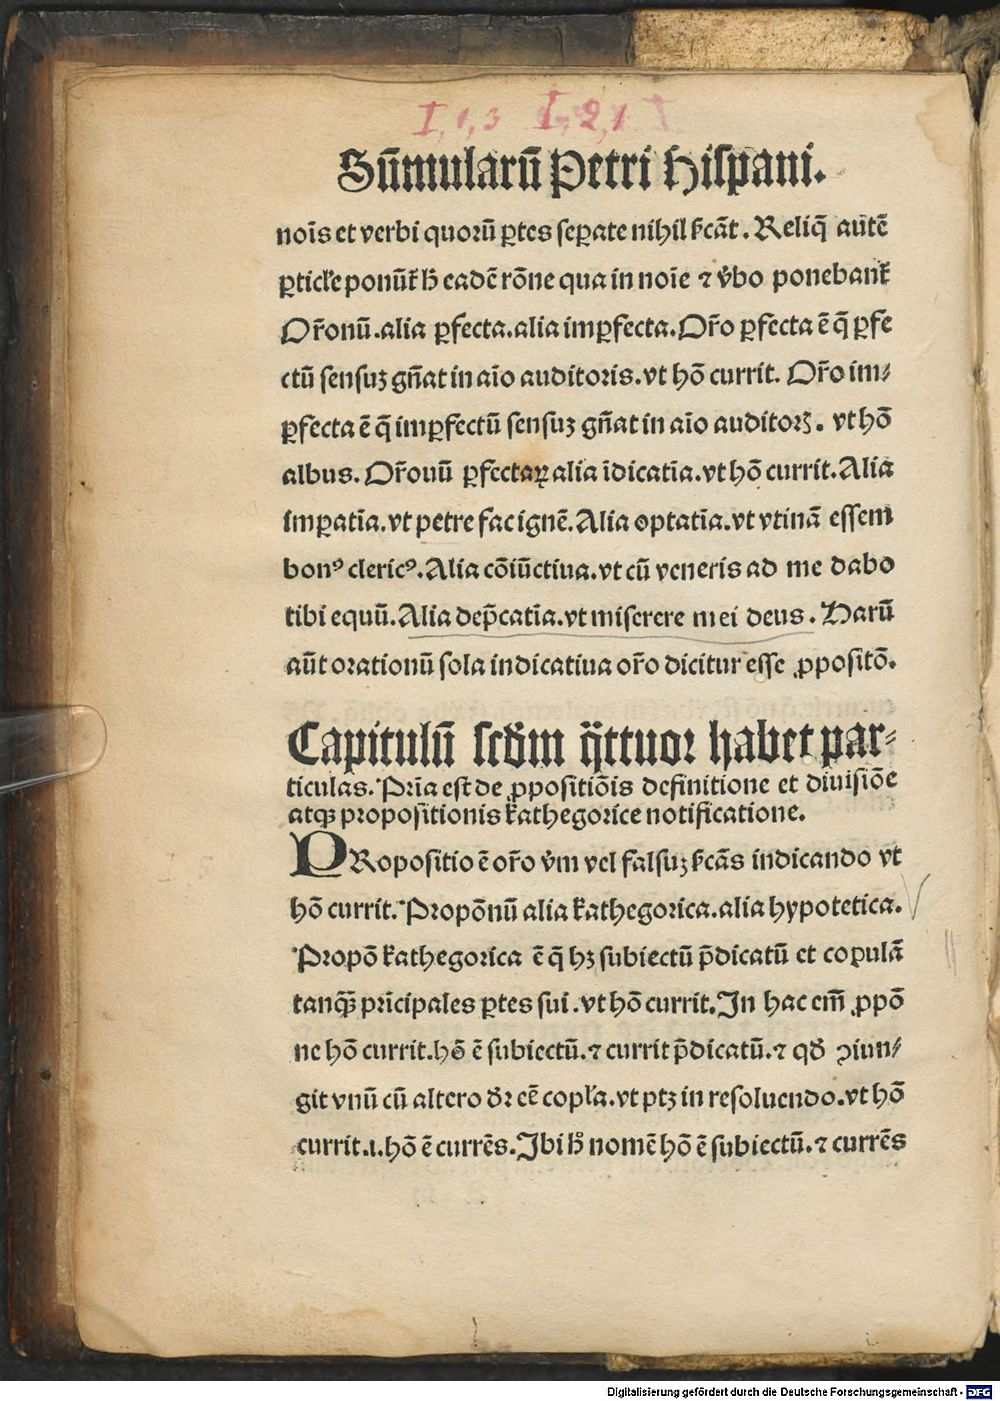 I,1,3 I,2,1 I
Sūmularū Petri Hispani.
noīs et verbi quorū ꝑtes seꝑate nihil ſ̄cāt. Reliq̄ autē
ꝑticl'e ponūt᷑ h̄ eadē rōne qua in noīe ⁊ v̄bo ponebant᷑
Or̄onū. alia ꝑfecta. alia imꝑfecta. Or̄o ꝑfecta ē q̄ ꝑfe
ctū sensuꝫ gn̄at in aīo auditoris. vt hō currit. Or̄o im⸗
ꝑfecta ē q̄ imꝑfectū sensuꝫ gn̄at in aīo auditoꝝ. vt hō
albus. Or̄onū ꝑfectaꝝ alia īdicatīa. vt hō currit. Alia
imꝑatīa. vt petre fac ignē. Alia optatīa. vt vtinā essem
bonꝰ clericꝰ. Alia cōiūctiua. vt cū veneris ad me dabo
tibi equū. Alia dep̄catīa. vt miserere mei deus. Harū
aūt orationū sola indicatiua or̄o dicitur esse ꝓpositō.
Capitulū scd̄m q̈ttuor habet par⸗
ticulas. Prīa est de ꝓpositiōis definitione et diuisiōe
atqꝫ propositionis kathegorice notificatione.
PRopositio ē or̄o v̄m vel falsuꝫ ſ̄cās indicando vt
hō currit. Propōnū alia kathegorica. alia hypotetica.
Propō kathegorica ē q̄ hꝫ subiectū p̄dicatū et copulā
tanqꝫ prīcipales ꝑtes sui. vt hō currit. In hac em̄ ꝓpō
ne hō currit. hō ē subiectū. ⁊ currit p̄dicatū. ⁊ qd̄ ↄiun⸗
git vnū cū altero d̄r eē copl'a. vt ptꝫ in resoluendo. vt hō
currit .i. hō ē currēs. Ibi h̄ nomē hō ē subiectū. ⁊ currēs
Digitalisierung gefördert durch die Deutsche Forschungsgemeinschaft - DFG